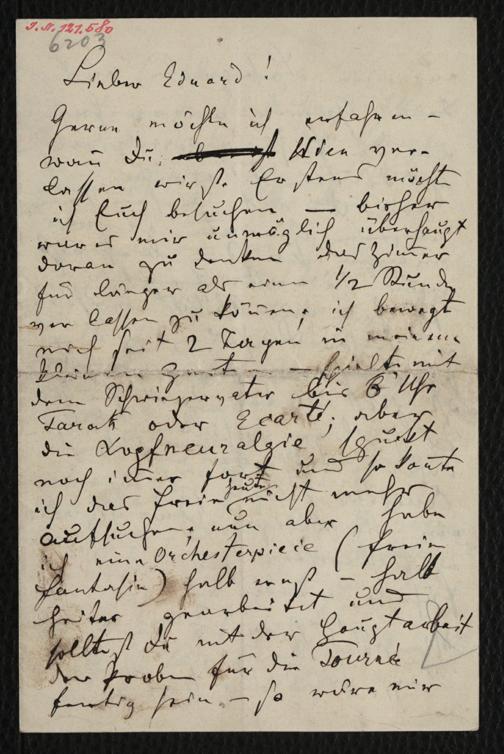 I.N. 121.580
6203
Lieber Eduard!
Gerne möchte ich erfahren –
wañ du, Wien ver-
lassen wirst. Erstens möcht
ich Euch besuchen — bisher
war es mir unmöglich überhaupt
daran zu denken das Zim̃er
für länger als eine 1/2 Stunde
verlassen zu köñen, ich bewegt
mich seit 2 Tagen in meinem
kleinen – spielte mit
dem Schwiegervater bis 6 Uhr
Tarok oder Ecarté; aber
die Kopfneuralgie spuckt
noch im̃er fort und so koñte
ich das Freie heute nicht mehr
aufsuchen, nun aber habe
ich eine Orchesterpieçe (freie
Fantasie) halb ernst – halb
heiter gearbeitet und
solltest du mit der Hauptarbeit
der Proben für die Tourné
fertig sein, – so wäre mir